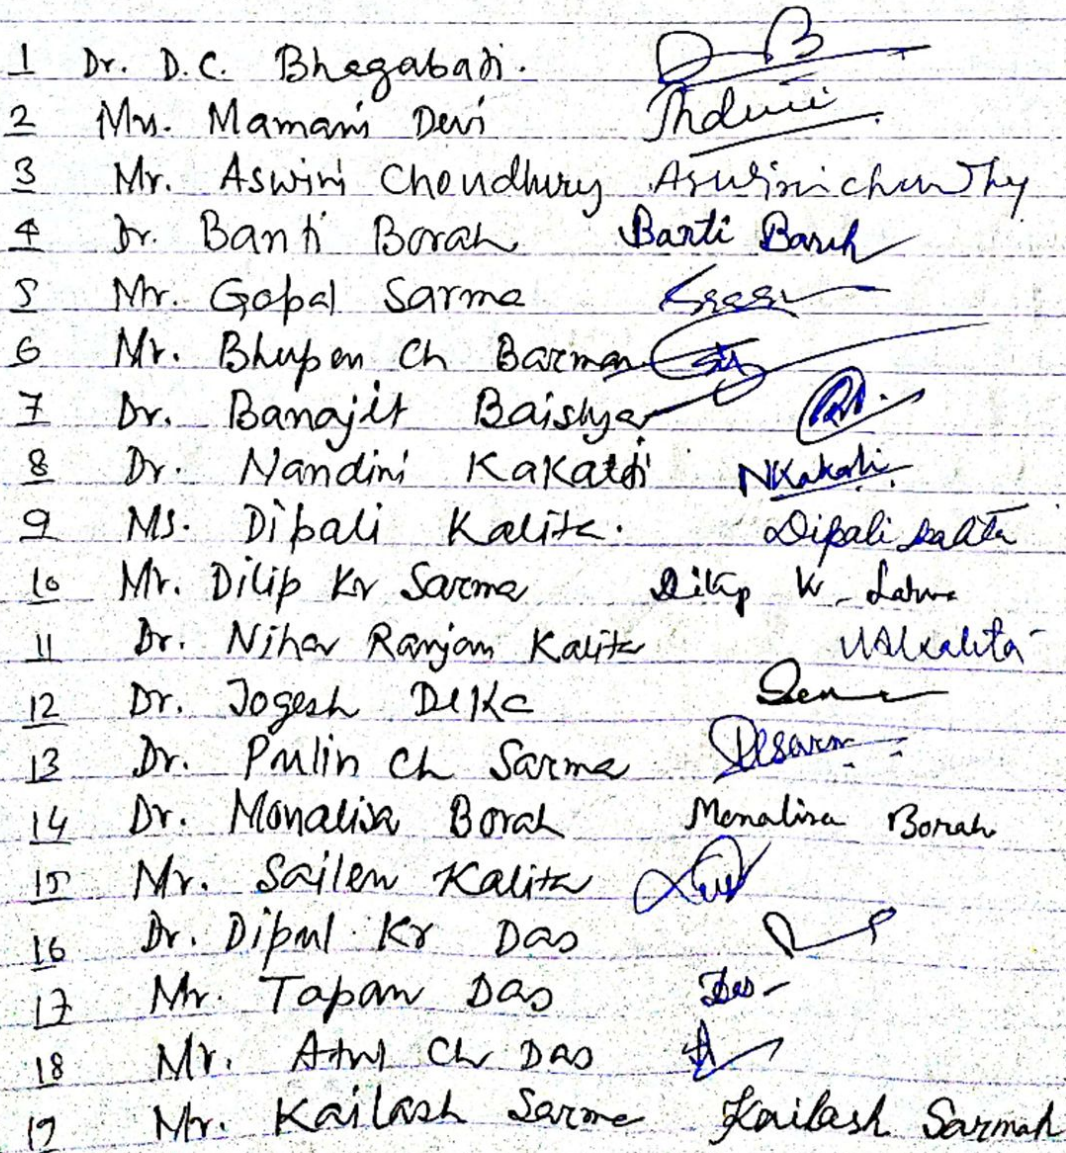 1 Dr. D.C. Bhagabati.
2 Mrs. Mamani Devi
3 Mr. Aswini Choudhury Aswini choudhury
4 Dr. Banti Borah Banti Borah
5 Mr. Gopal Sarma
6 Mr. Bhupen Ch Barman
7 Dr. Banajit Baishya
8 Dr. Nandini Kakati NKakati
9 Ms. Dipali Kalita. Dipali Kalita
10 Mr. Dilip Kr Sarma Dilip Kr. Sarma
11 Dr. Nihar Ranjan Kalita NRKalita
12 Dr. Jogesh Deka
13 Dr. Pulin Ch Sarma
14 Dr. Monalisa Borah Monalisa Borah
15 Mr. Sailen Kalita
16 Dr. Dipul Kr Das
17 Mr. Tapan Das Das
18 Mr. Atul Ch Das
19 Mr. Kailash Sarma Kailash Sarmah